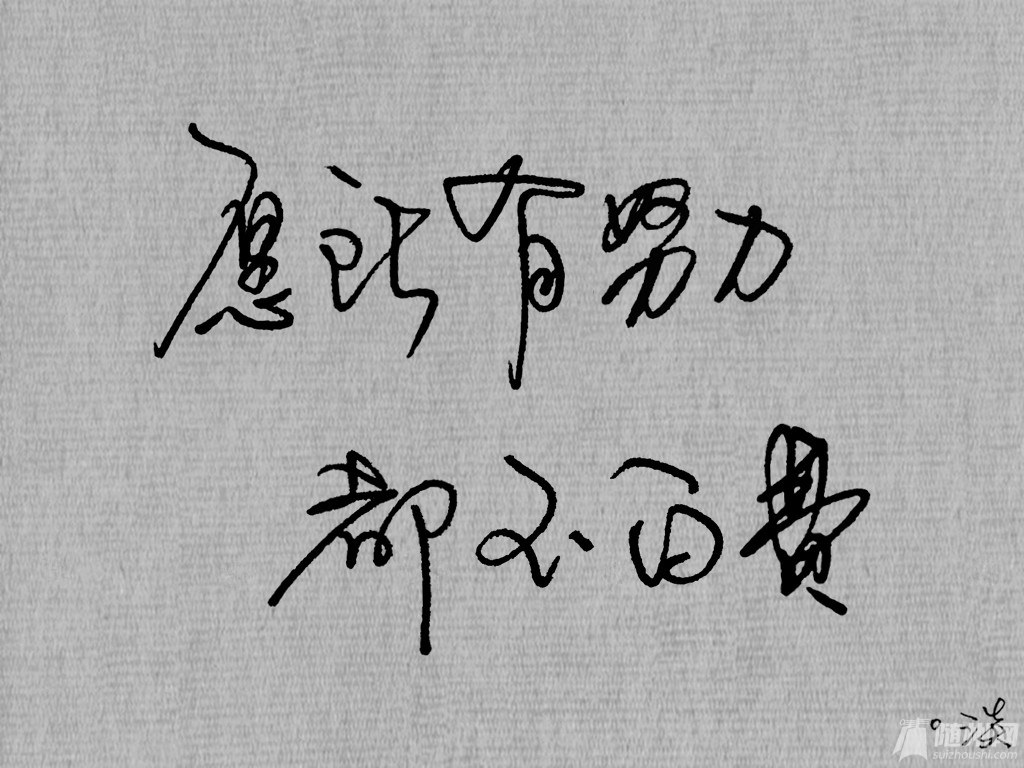 愿所有努力
都不白费
随州网
suizhoushi.com